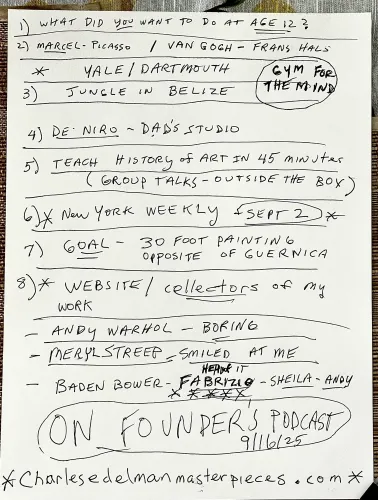 1) WHAT DID YOU WANT TO DO AT AGE 12?
2) MARCEL-PICASSO / VAN GOGH - FRANS HALS
* YALE / DARTMOUTH
GYM FOR
THE MIND
3) JUNGLE IN BELIZE
4) DE NIRO - DAD'S STUDIO
5) TEACH HISTORY of ART IN 45 minutes
(GROUP TALKS - OUTSIDE THE BOX)
6) * New YORK WEEKLY - SEPT 2 *
7) GOAL - 30 FOOT PAINTING
OPPOSITE OF GUERNICA
8) * WEBSITE / collectors of my
WORK
- ANDY WARHOL - BORING
- MERYL STREEP - SMILED AT ME
HEADS IT
- BADEN BOWER - FABRIZIO - SHEILA - ANDY
* * * * *
ON FOUNDER'S PODCAST
9/16/25
* Charlesedelmanmasterpieces.com *